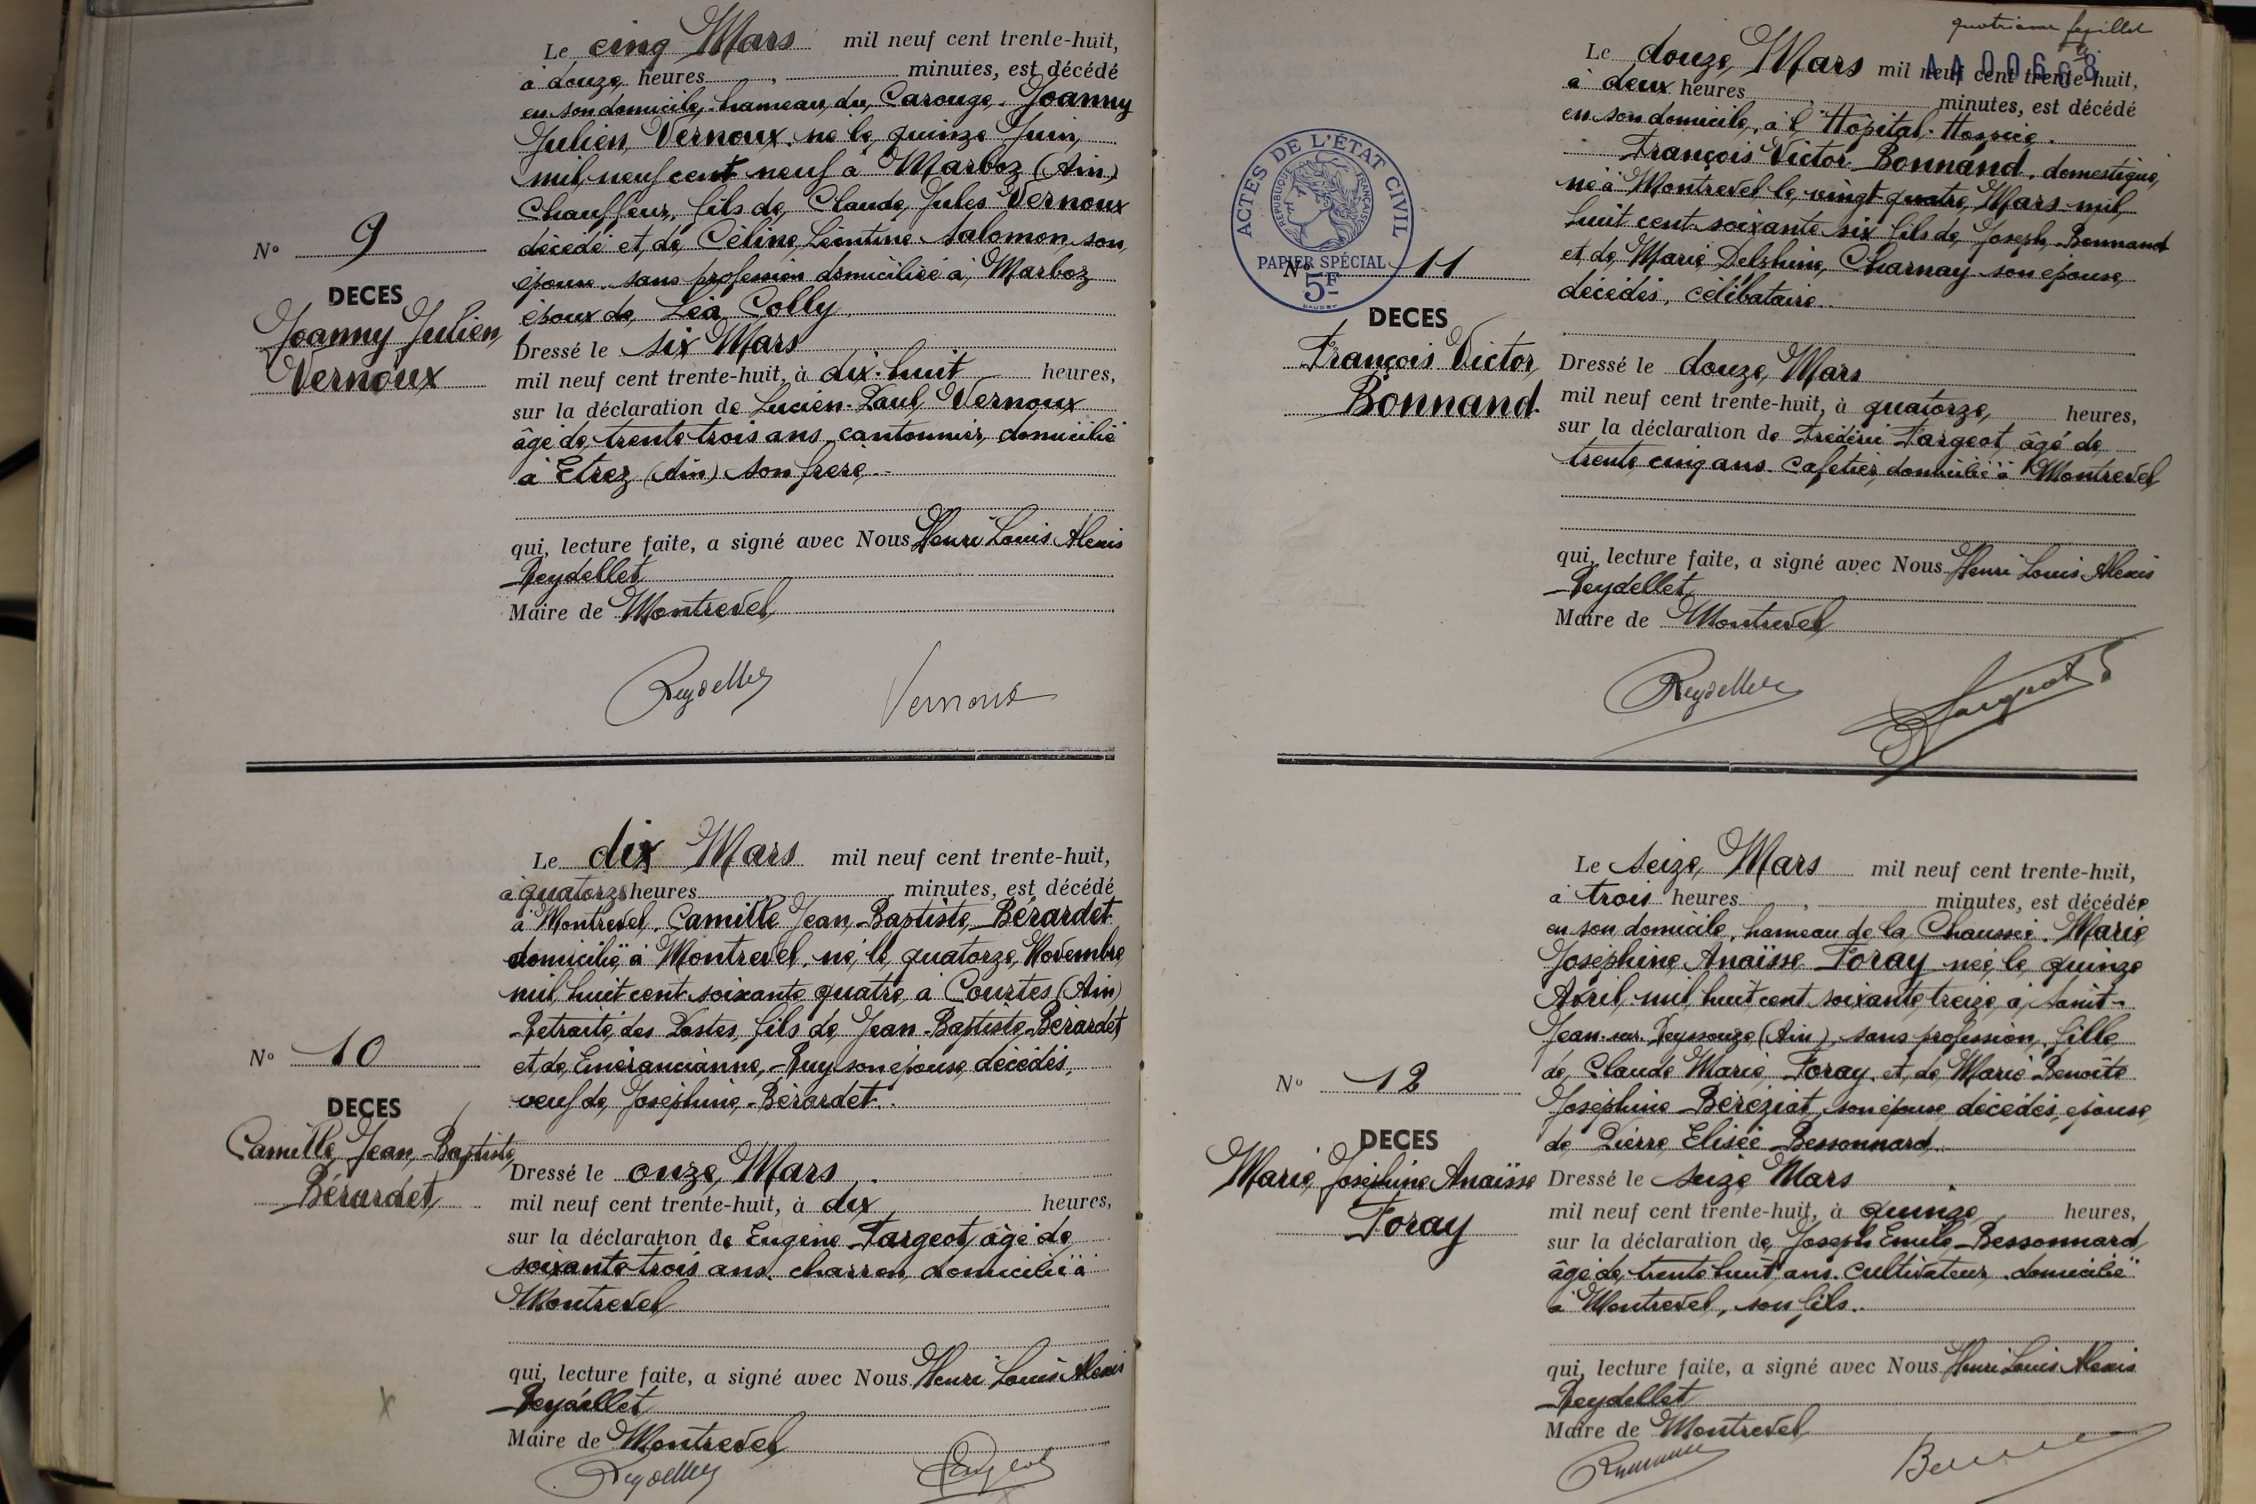 Le cinq Mars mil neuf cent trente-huit,
à douze heures, minutes, est décédé
en son domicile, hameau du Carouge. Joanny
Julien Vernoux né le quinze Juin
mil neuf cent neuf à Marboz (Ain)
Chauffeur, fils de Claude Jules Vernoux
décédé et de Céline Léontine Salomon son
épouse sans profession domiciliée à Marboz
époux de Léa Colly
Nº 9
DECES
Joanny Julien
Vernoux
Dressé le six Mars
mil neuf cent trente-huit, à dix-huit heures,
sur la déclaration de Lucien-Paul Vernoux
âgé de trente trois ans, cantonnier, domicilié
à Etrez (Ain) son frère.-
qui, lecture faite, a signé avec Nous Henri Louis Alexis
Reydellet
Maire de Montrevel
Reydellet Vernoux
Le dix Mars mil neuf cent trente-huit,
à quatorze heures minutes, est décédé
à Montrevel. Camille Jean-Baptiste Bérardet
domicilié à Montrevel, né le quatorze Novembre
mil huit cent soixante quatre à Courtes (Ain)
Retraité des Postes, fils de Jean-Baptiste Bérardet
et de Emérancianne Ruy son épouse décédés,
veuf de Joséphine Bérardet.
Nº 10
DECES
Camille Jean-Baptiste
Bérardet
Dressé le onze Mars
mil neuf cent trente-huit, à dix heures,
sur la déclaration de Eugène Fargeot, âgé de
soixante trois ans, charron, domicilié à
Montrevel
qui, lecture faite, a signé avec Nous Henri Louis Alexis
Reydellet
Maire de Montrevel
Reydellet Fargeot
quatrième feuillet
AA 00668
Le douze Mars mil neuf cent trente-huit,
à deux heures minutes, est décédé
en son domicile, à l'Hôpital-Hospice.
François Victor Bonnand, domestique,
né à Montrevel le vingt-quatre Mars mil
huit cent soixante six fils de Joseph Bonnand
et de Marie Delphine Charnay son épouse,
décédés, célibataire.
ACTES DE L'ÉTAT CIVIL
RÉPUBLIQUE FRANÇAISE
PAPIER SPÉCIAL
5F
Nº 11
DECES
François Victor
Bonnand.
Dressé le douze Mars
mil neuf cent trente-huit, à quatorze heures,
sur la déclaration de Frédéric Fargeot, âgé de
trente cinq ans, cafetier, domicilié à Montrevel
qui, lecture faite, a signé avec Nous Henri Louis Alexis
Reydellet
Maire de Montrevel
Reydellet Fargeot
Le seize Mars mil neuf cent trente-huit,
à trois heures, minutes, est décédée
en son domicile, hameau de la Chaussée. Marie
Joséphine Anaïsse Foray née le quinze
Avril mil huit cent soixante treize à Saint-
Jean-sur-Reyssouze (Ain), sans profession, fille
de Claude Marie Foray et de Marie Benoîte
Joséphine Béréziat, son épouse décédés, épouse
de Pierre Elisée Bessonnard.
Nº 12
DECES
Marie Joséphine Anaïsse
Foray
Dressé le seize Mars
mil neuf cent trente-huit, à quinze heures,
sur la déclaration de Joseph Emile Bessonnard
âgé de trente huit ans. Cultivateur, domicilié
à Montrevel, son fils.
qui, lecture faite, a signé avec Nous Henri Louis Alexis
Reydellet
Maire de Montrevel